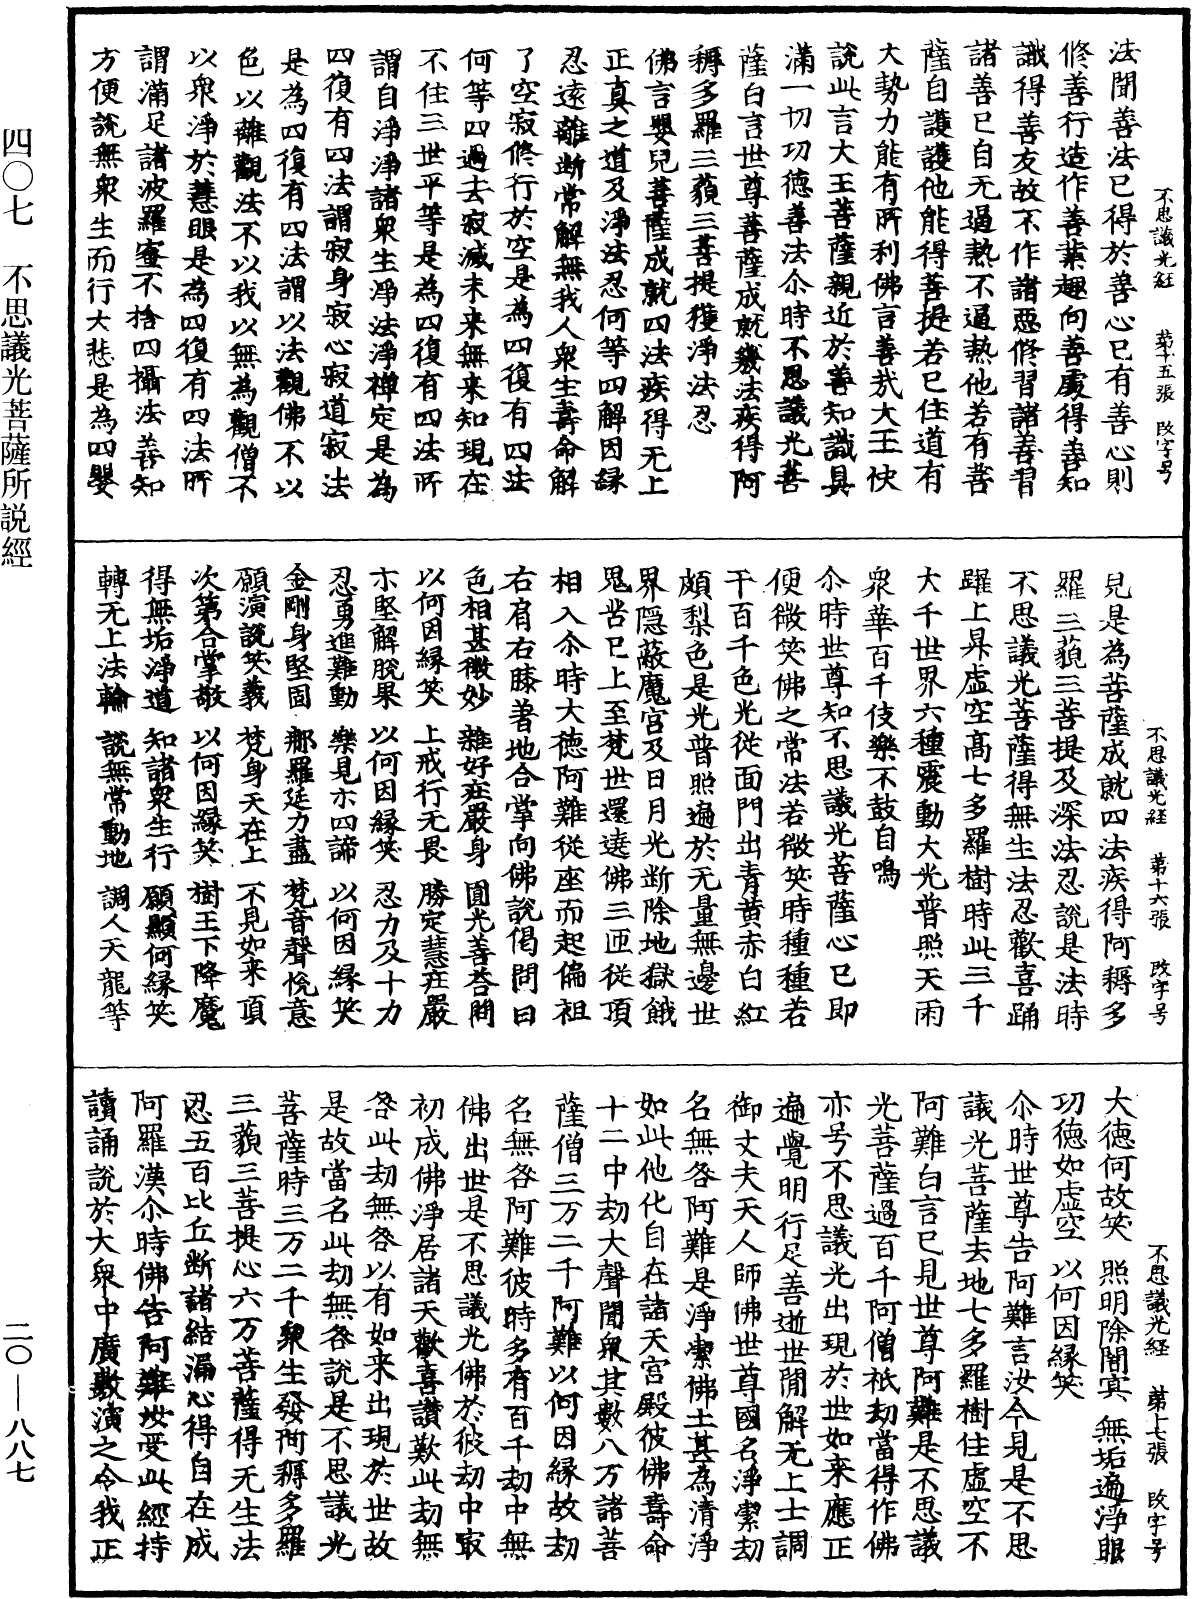 不思議光経　第十五張　改字号
法聞善法已得於善心已有善心則
修善行造作善業趣向善處得善知
識得善友故不作諸惡修習諸善習
諸善已自无過熱不過熱他若有菩
薩自護護他能得菩提若已住道有
大勢力能有所利佛言善哉大王快
說此言大王菩薩親近於善知識具
滿一切功德善法尒時不思議光菩
薩白言世尊菩薩成就幾法疾得阿
耨多羅三藐三菩提獲淨法忍
佛言嬰兒菩薩成就四法疾得无上
正真之道及淨法忍何等四解因緣
忍遠離斷常解無我人衆生壽命解
了空寂修行於空是為四復有四法
何等四過去寂滅未来無来知現在
不住三世平等是為四復有四法所
謂自淨淨諸衆生淨法淨禅定是為
四復有四法謂寂身寂心寂道寂法
是為四復有四法謂以法觀佛不以
色以離觀法不以我以無為觀僧不
以衆淨於慧眼是為四復有四法所
謂滿足諸波羅蜜不捨四攝法善知
方便說無衆生而行大悲是為四嬰
不思議光経　第十六張　改字号
兒是為菩薩成就四法疾得阿耨多
羅三藐三菩提及深法忍說是法時
不思議光菩薩得無生法忍歡喜踊
躍上昇虛空高七多羅樹時此三千
大千世界六種震動大光普照天雨
衆華百千伎樂不鼓自鳴
尒時世尊知不思議光菩薩心已即
便微笑佛之常法若微笑時種種若
干百千色光從面門出青黄赤白紅
頗梨色是光普照遍於无量無邊世
界隱蔽魔宮及日月光斷除地獄餓
鬼苦已上至梵世還遶佛三匝從頂
相入尒時大德阿難從座而起偏袒
右肩右膝著地合掌向佛說偈問曰
色相甚微妙　雜好庄嚴身　圓光善荅問
以何因緣笑　上戒行无畏　勝定慧庄嚴
亦堅解脫果　以何因緣笑　忍力及十力
忍勇進難動　樂見亦四諦　以何因緣笑
金剛身堅固　那羅延力盡　梵音聲悅意
願演說笑義　梵身天在上　不見如来頂
次第合掌敬　以何因緣笑　樹王下降魔
得無垢淨道　知諸衆生行　願顯何緣笑
轉无上法輪　說無常動地　調人天龍等
不思議光経　第十七張　改字号
大德何故笑　照明除闇冥　無垢遍淨眼
功德如虛空　以何因緣笑
尒時世尊告阿難言汝今見是不思
議光菩薩去地七多羅樹住虛空不
阿難白言已見世尊阿難是不思議
光菩薩過百千阿僧祇劫當得作佛
亦号不思議光出現於世如来應正
遍覺明行足善逝世間解无上士調
御丈夫天人師佛世尊國名淨潔劫
名無咎阿難是淨潔佛土甚為清淨
如此他化自在諸天宮殿彼佛壽命
十二中劫大聲聞衆其數八万諸菩
薩僧三万二千阿難以何因緣故劫
名無咎阿難彼時多有百千劫中無
佛出世是不思議光佛於彼劫中㝡
初成佛淨居諸天歡喜讚歎此劫無
咎此劫無咎以有如来出現於世故
是故當名此劫無咎說是不思議光
菩薩時三万二千衆生發阿耨多羅
三藐三菩提心六万菩薩得无生法
忍五百比丘斷諸結漏心得自在成
阿羅漢尒時佛告阿難汝受此經持
讀誦說於大衆中廣敷演之令我正
四〇七　不思議光菩薩所説經
二〇—八八七